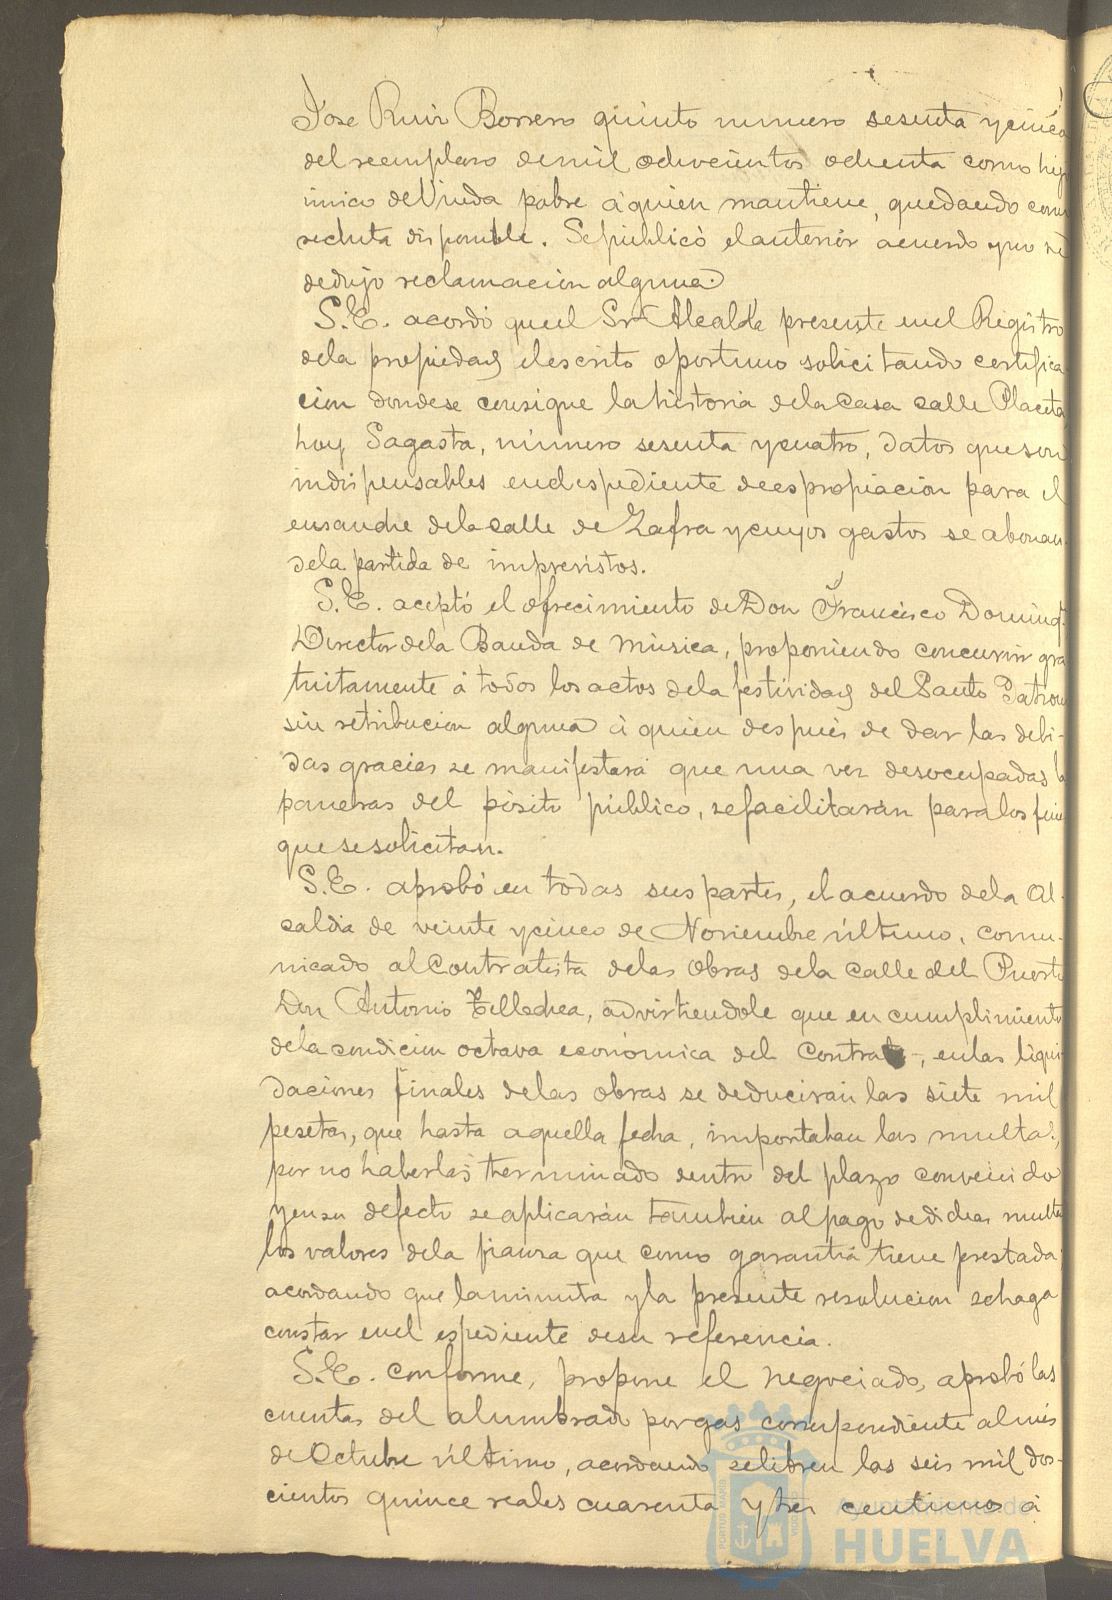 Jose Ruiz Borrero quinto numero sesenta y cinco
del reemplazo de mil ochocientos ochenta como hijo
único de Viuda pobre á quien mantiene, quedando como
recluta disponible. Se publicó el anterior acuerdo y no se
dedujo reclamacion alguna.
S.E. acordó que el Sr. Alcalde presente en el Registro
de la propiedad el escrito oportuno solicitando certifica-
cion donde se consigne la historia de la casa calle Placeta
hoy Sagasta, número sesenta y cuatro, datos que son
indispensables en el espediente de espropiacion para el
ensanche de la calle de Zafra y cuyos gastos se abonan
de la partida de imprevistos.
S.E. aceptó el ofrecimiento de Don Francisco Doming.
Director de la Banda de Música, proponiendo concurrir gra
tuitamente á todos los actos de la festividad del Santo Patron
sin retribucion alguna á quien despues de dar las debi-
das gracias se manifestará que una vez desocupadas la
paneras del pósito público, se facilitarán para los fine
que se solicitan.
S.E. aprobó en todas sus partes, el acuerdo de la Al-
caldia de veinte y cinco de Noviembre último, comu-
nicado al Contratista de las obras de la calle del Puerto
Don Antonio Tellechea, advirtiendole que en cumplimiento
de la condicion octava económica del Contrato, en las liqui-
daciones finales de las obras se deducirán las siete mil
pesetas, que hasta aquella fecha, importaban las multas,
por no haberlas therminado dentro del plazo convenido
y en su defecto se aplicarán tambien al pago de dichas multas
los valores de la fianza que como garantia tiene prestada
acordando que la minuta y la presente resolucion se haga
constar en el espediente de su referencia.
S.E. conforme, propone el negociado, aprobó las
cuentas del alumbrado por gas correspondiente al mes
de Octubre último, acordando se libren las seis mil dos-
cientos quince reales cuarenta y tres centimos á
PORTUS MARIS
Ayuntamiento de
HUELVA